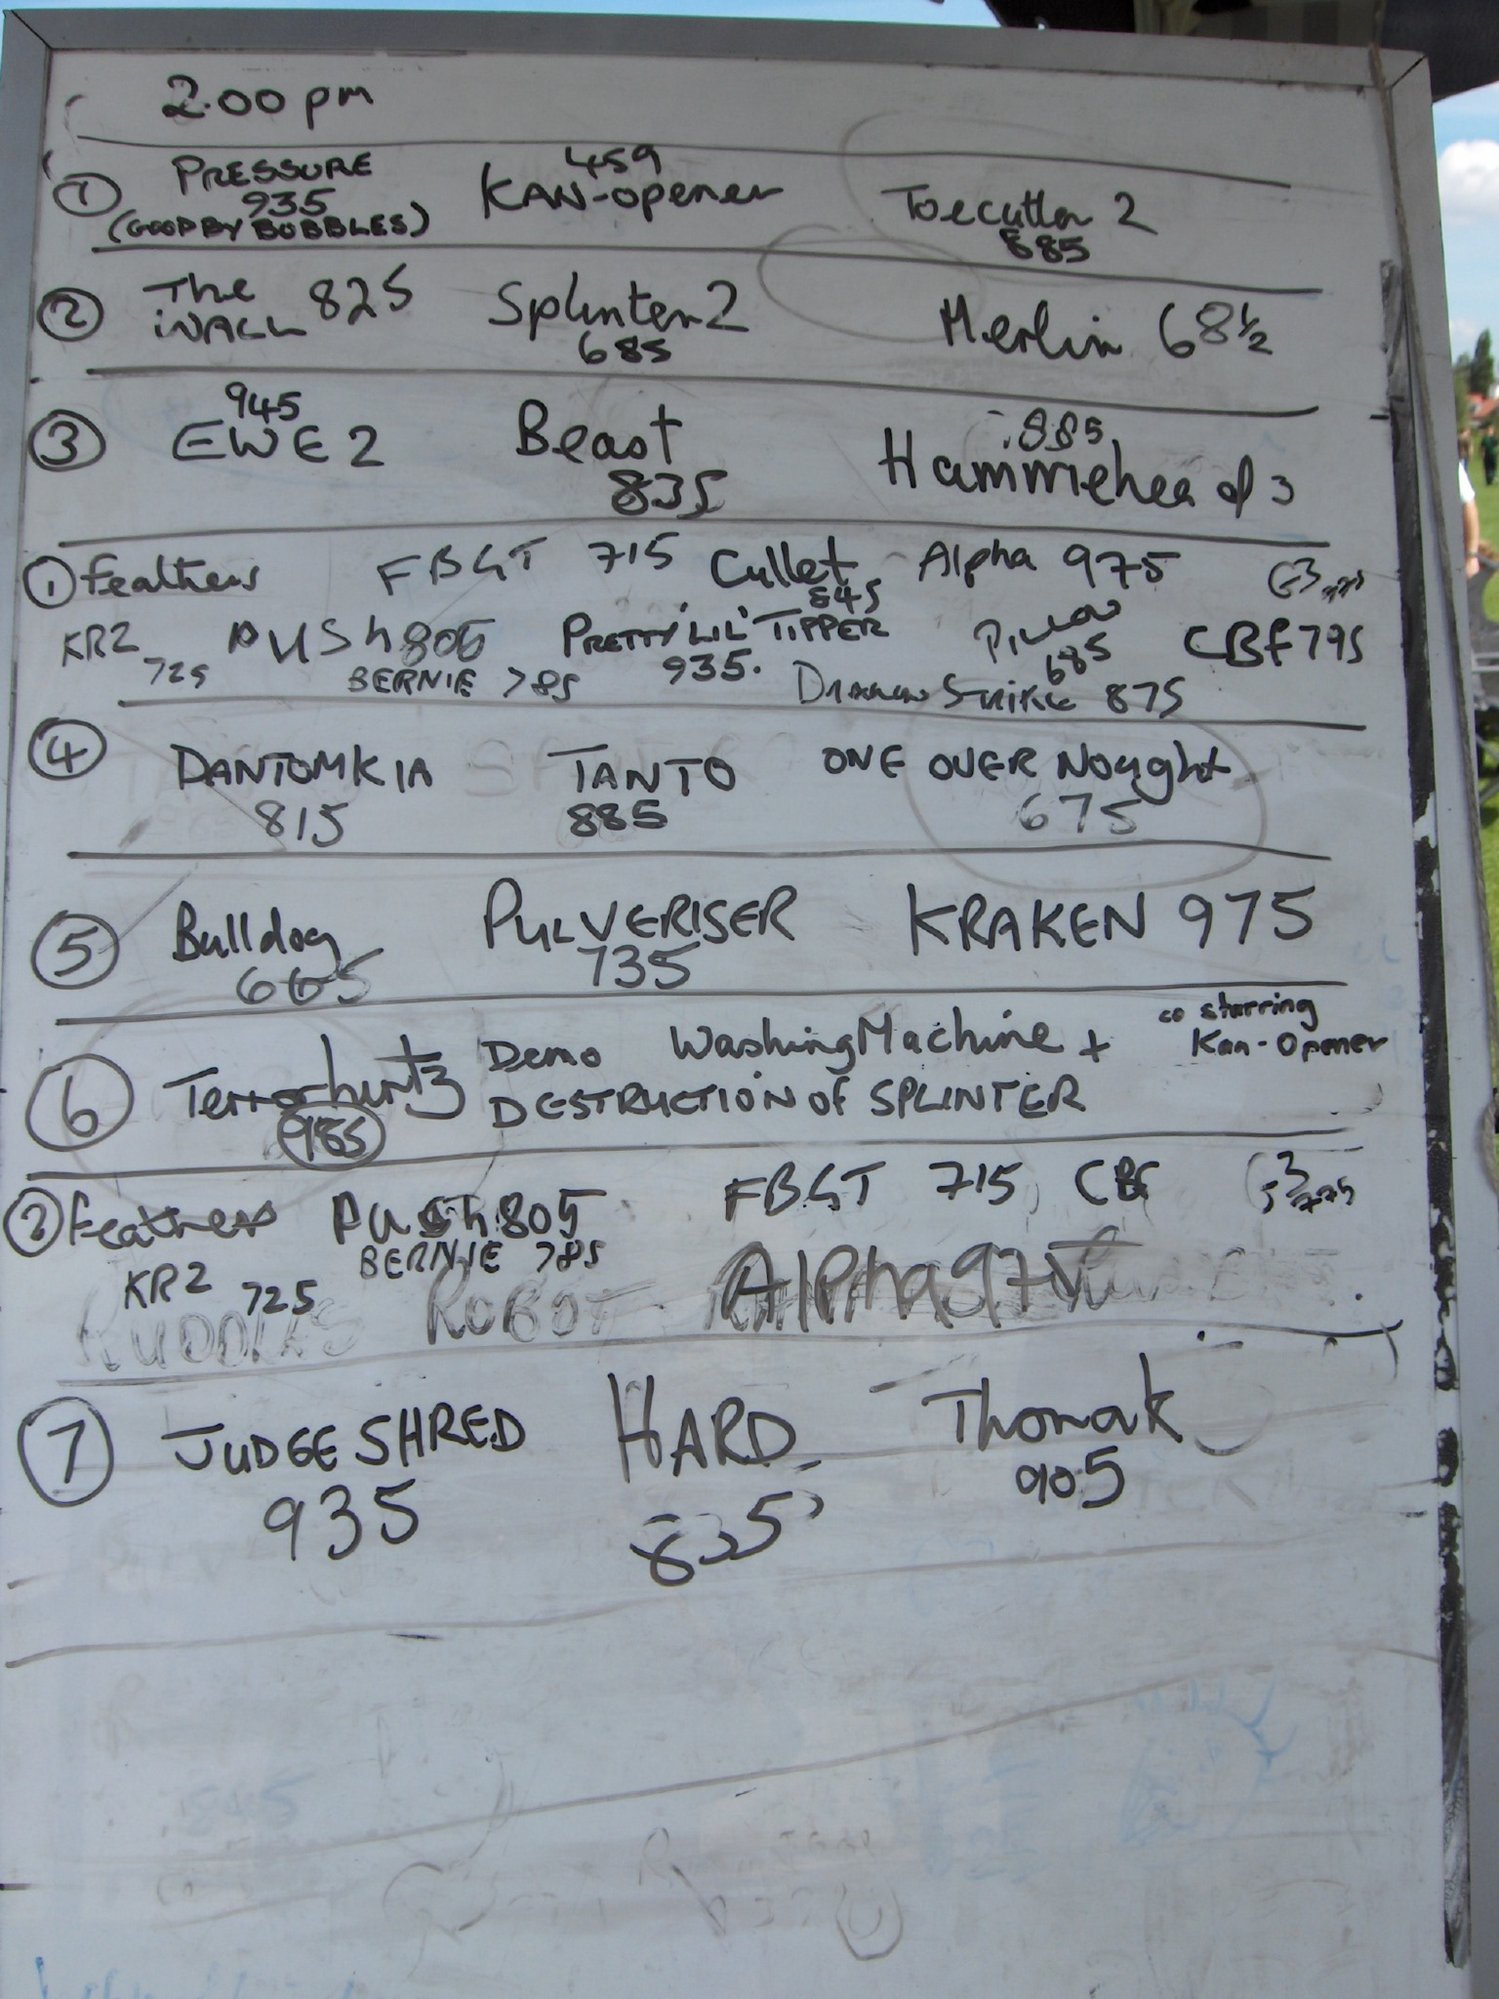 2.00 pm
① PRESSURE 935 (GOODBY BOBBLES) KAN-opener 459 Toecutter 2 885
② The WALL 825 Splinter 2 685 Merlin 68½
③ EWE 2 945 Beast 835 Hammerhead 3 885
① Feathers FBGT 715 Cullet 845 Alpha 975 G3 775
KR2 725 PUSH 805 PRETTY 'LIL' TIPPER 935. 685 CBF 795
BERNIE 785 Strike 875
④ DANTOMKIA 815 TANTO 885 ONE OVER Nought 675
⑤ Bulldog 665 PULVERISER 735 KRAKEN 975
⑥ Terrorhurtz 985 Demo Washing Machine + co starring Kan-Opener
DESTRUCTION OF SPLINTER
② Feathers PUSH 805 FBGT 715 CBF G3 775
BERNIE 785
KR2 725 Alpha 975
RUDDLES ROBOT
⑦ JUDGE SHRED 935 HARD 835 Thorak 905